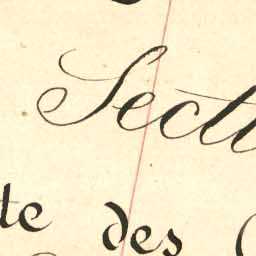 Secti
te des